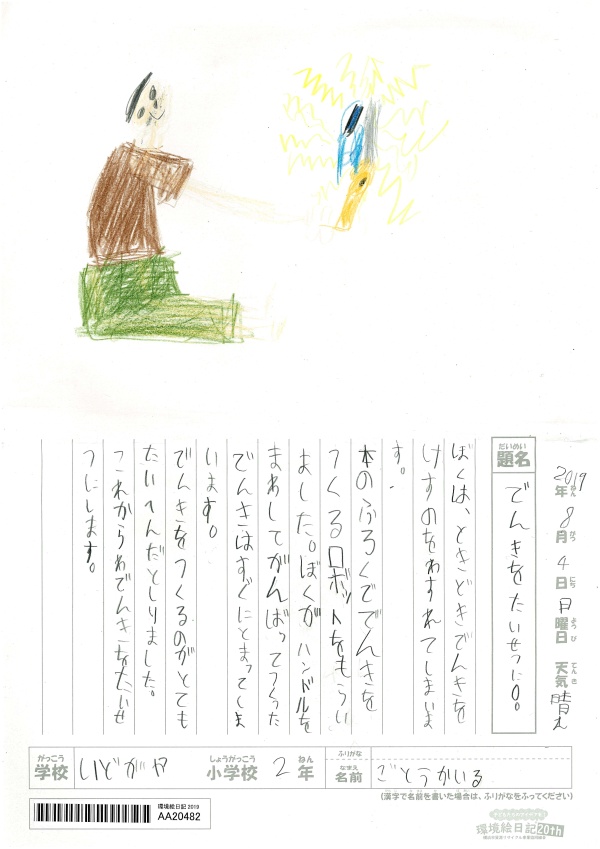 2019年ねん8月がつ4日にち日曜日ようび 天気てんき 晴れ
題名だいめい でんきをたいせつに。
ぼくは、ときどきでんきを
けすのをわすれてしまいま
す。
本のふろくででんきを
つくるロボットをもらい
ました。ぼくがハンドルを
まわしてがんばってつくった
でんきはすぐにとまってしま
います。
でんきをつくるのがとても
たいへんだとしりました。
これからわでんきをたいせ
つにします。
がっこう学校 いどがや しょうがっこう小学校 2ねん年 ふりがな なまえ名前 ごとうかいる
(漢字で名前を書いた場合は、ふりがなをふってください)
環境絵日記 2019
AA20482
環境絵日記20th